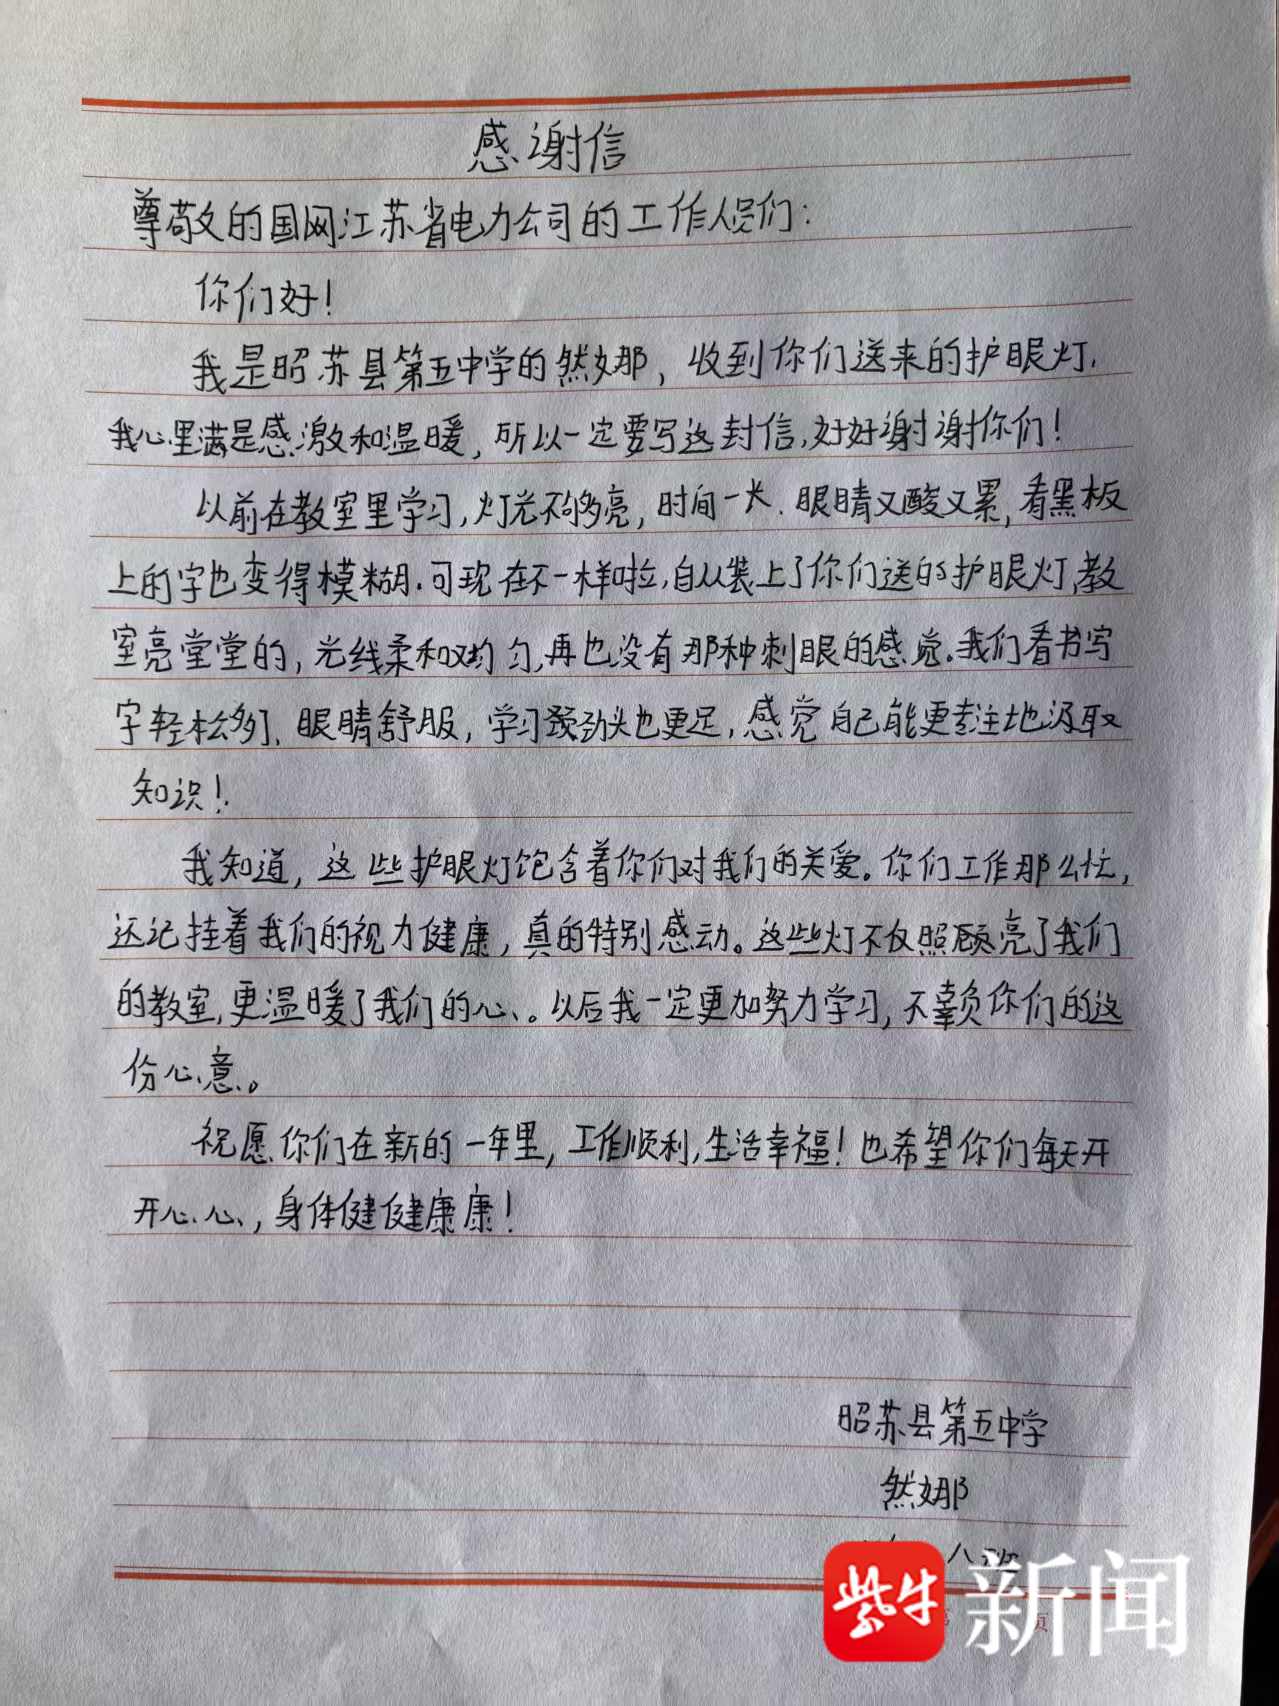 感谢信
尊敬的国网江苏省电力公司的工作人员们：
你们好！
我是昭苏县第五中学的然娜，收到你们送来的护眼灯，
我心里满是感激和温暖，所以一定要写这封信，好好谢谢你们！
以前在教室里学习，灯光不够亮，时间一长，眼睛又酸又累，看黑板
上的字也变得模糊。可现在不一样啦，自从装上了你们送的护眼灯，教
室亮堂堂的，光线柔和均匀，再也没有那种刺眼的感觉。我们看书写
字轻松多了，眼睛舒服，学习劲头也更足，感觉自己能更专注地汲取
知识！
我知道，这些护眼灯饱含着你们对我们的关爱。你们工作那么忙，
还记挂着我们的视力健康，真的特别感动。这些灯不仅照亮了我们
的教室，更温暖了我们的心。以后我一定更加努力学习，不辜负你们的这
份心意。
祝愿你们在新的一年里，工作顺利，生活幸福！也希望你们每天开
开心心，身体健健康康！
昭苏县第五中学
然娜
八班
紫牛 新闻
页